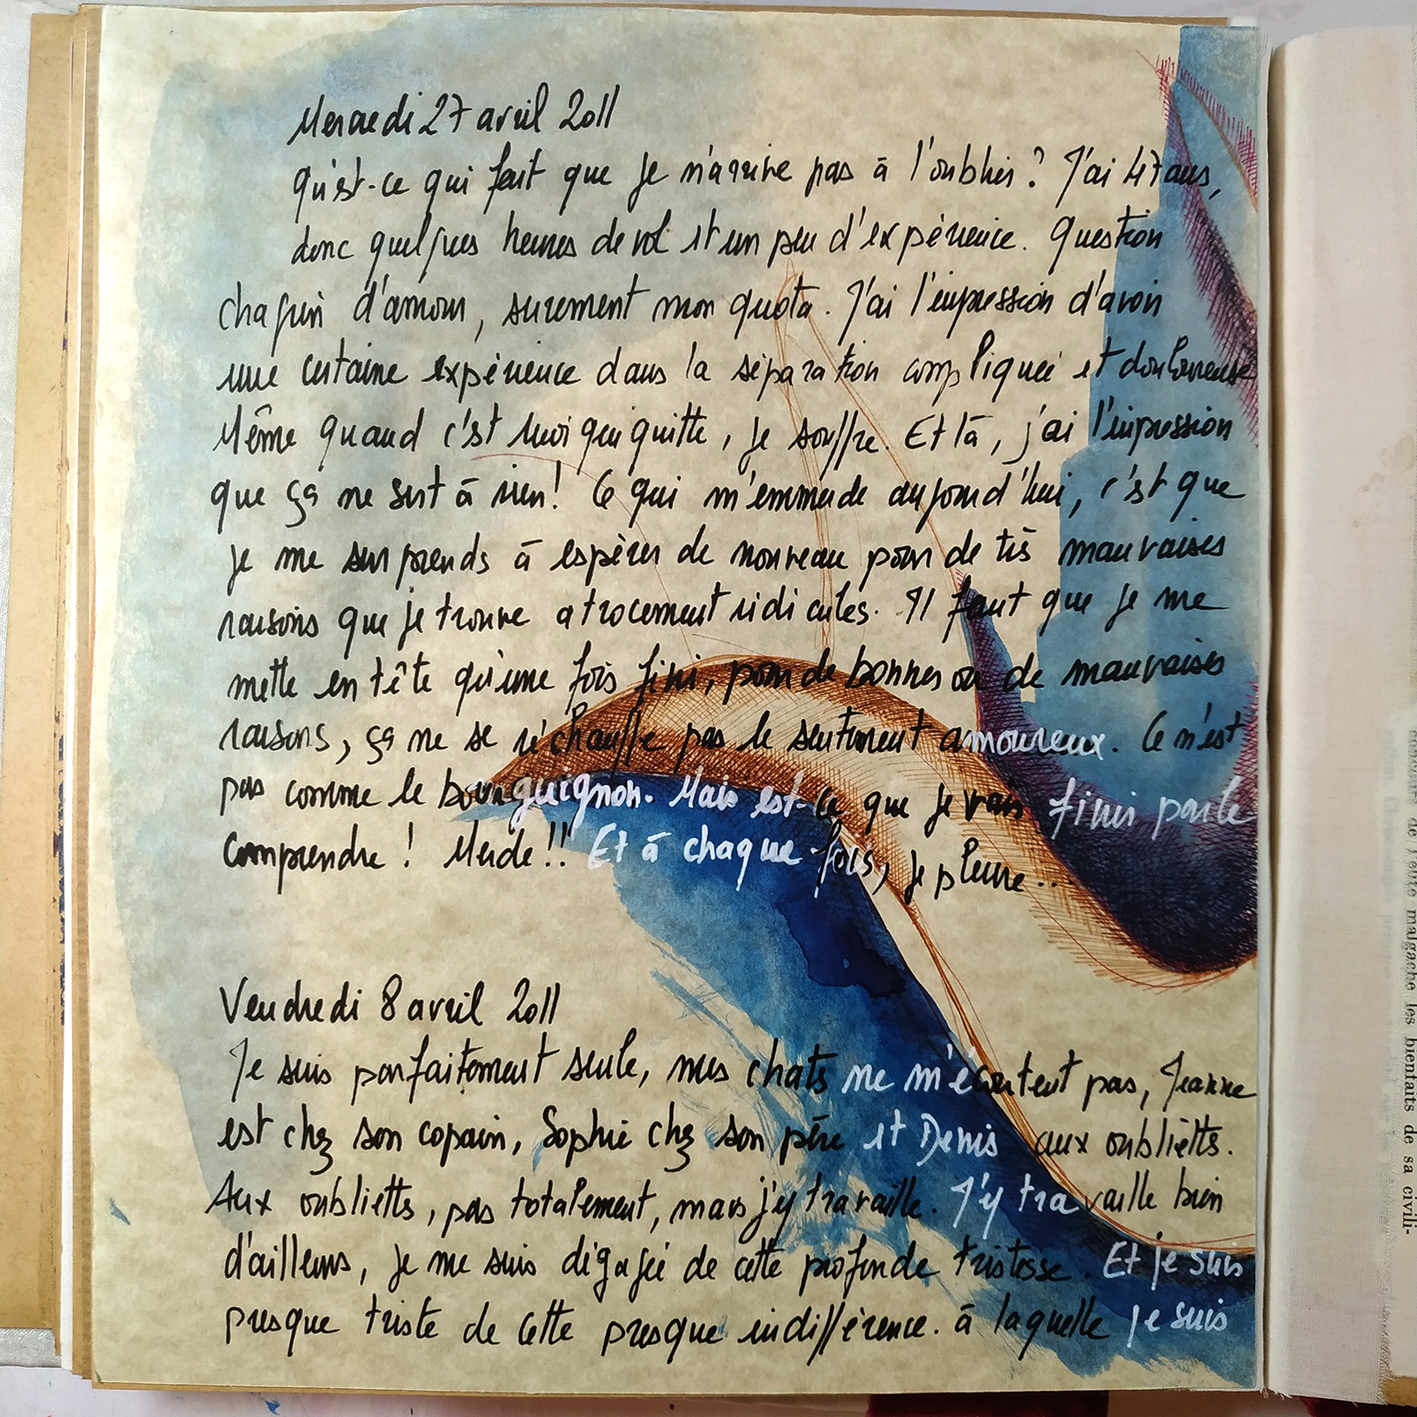 Mercredi 27 avril 2011
Qu'est-ce qui fait que je n'arrive pas à l'oublier ? J'ai 47 ans,
donc quelques heures de vol et un peu d'expérience. Question
chagrin d'amour, surement mon quota. J'ai l'impression d'avoir
une certaine expérience dans la séparation compliquée et douloureuse
Même quand c'est moi qui quitte, je souffre. Et là, j'ai l'impression
que ça ne sert à rien ! Ce qui m'emmerde aujourd'hui, c'est que
je me surprends à espérer de nouveau pour de très mauvaises
raisons que je trouve atrocement ridicules. Il faut que je me
mette en tête qu'une fois fini, pour de bonnes ou de mauvaises
raisons, ça ne se réchauffe pas le sentiment amoureux. Ce n'est
pas comme le bourguignon. Mais est-ce que je vais finir par le
comprendre ! Merde !! Et à chaque fois, je pleure...
Vendredi 8 avril 2011
Je suis parfaitement seule, mes chats ne m'écoutent pas, Jeanne
est chez son copain, Sophie chez son père et Denis aux oubliettes.
Aux oubliettes, pas totalement, mais j'y travaille. J'y travaille bien
d'ailleurs, je me suis dégagée de cette profonde tristesse. Et je suis
presque triste de cette presque indifférence. à laquelle je suis
moeurs de l'école malgache les bienfaits de sa civili-